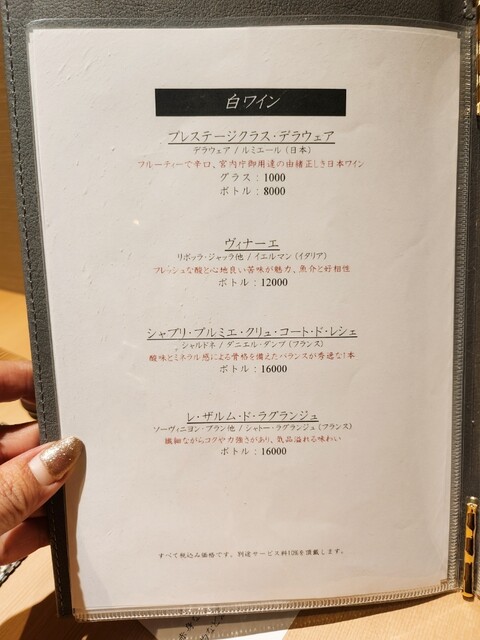 白ワイン
プレステージクラス・デラウェア
デラウェア / ルミエール (日本)
フルーティーで辛口、宮内庁御用達の由緒正しき日本ワイン
グラス : 1000
ボトル : 8000
ヴィナーエ
リボッラ・ジャッラ他 / イエルマン (イタリア)
フレッシュな酸と心地良い苦味が魅力、魚介と好相性
ボトル : 12000
シャブリ・プルミエ・クリュ・コート・ド・レシェ
シャルドネ / ダニエル・ダンプ (フランス)
酸味とミネラル感による骨格を備えたバランスが秀逸な1本
ボトル : 16000
レ・ザルム・ド・ラグランジュ
ソーヴィニヨン・ブラン他 / シャトー・ラグランジュ (フランス)
繊細ながらコクや力強さがあり、気品溢れる味わい
ボトル : 16000
すべて税込み価格です。別途サービス料10%を頂戴します。